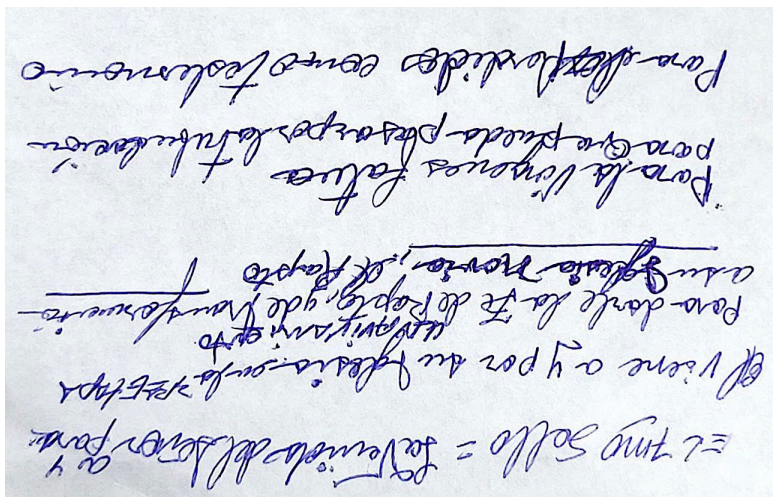 EL 7mo Sello = La Venida del Señor para
a y
El viene a y por su Iglesia en la 3ra Etapa
un Avivamiento
Para darle la Fe de Rapto, y de transformación
a su Iglesia Novia, el Rapto
Para la Vírgenes fatua
para que pueda pasar por la tribulación
Para los perdidos como testimonio